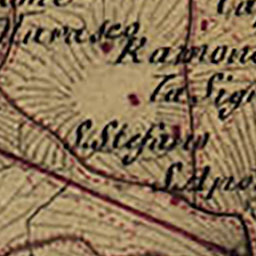 Marasco
Ramond
la Sig
S. Stefano
S. Apo